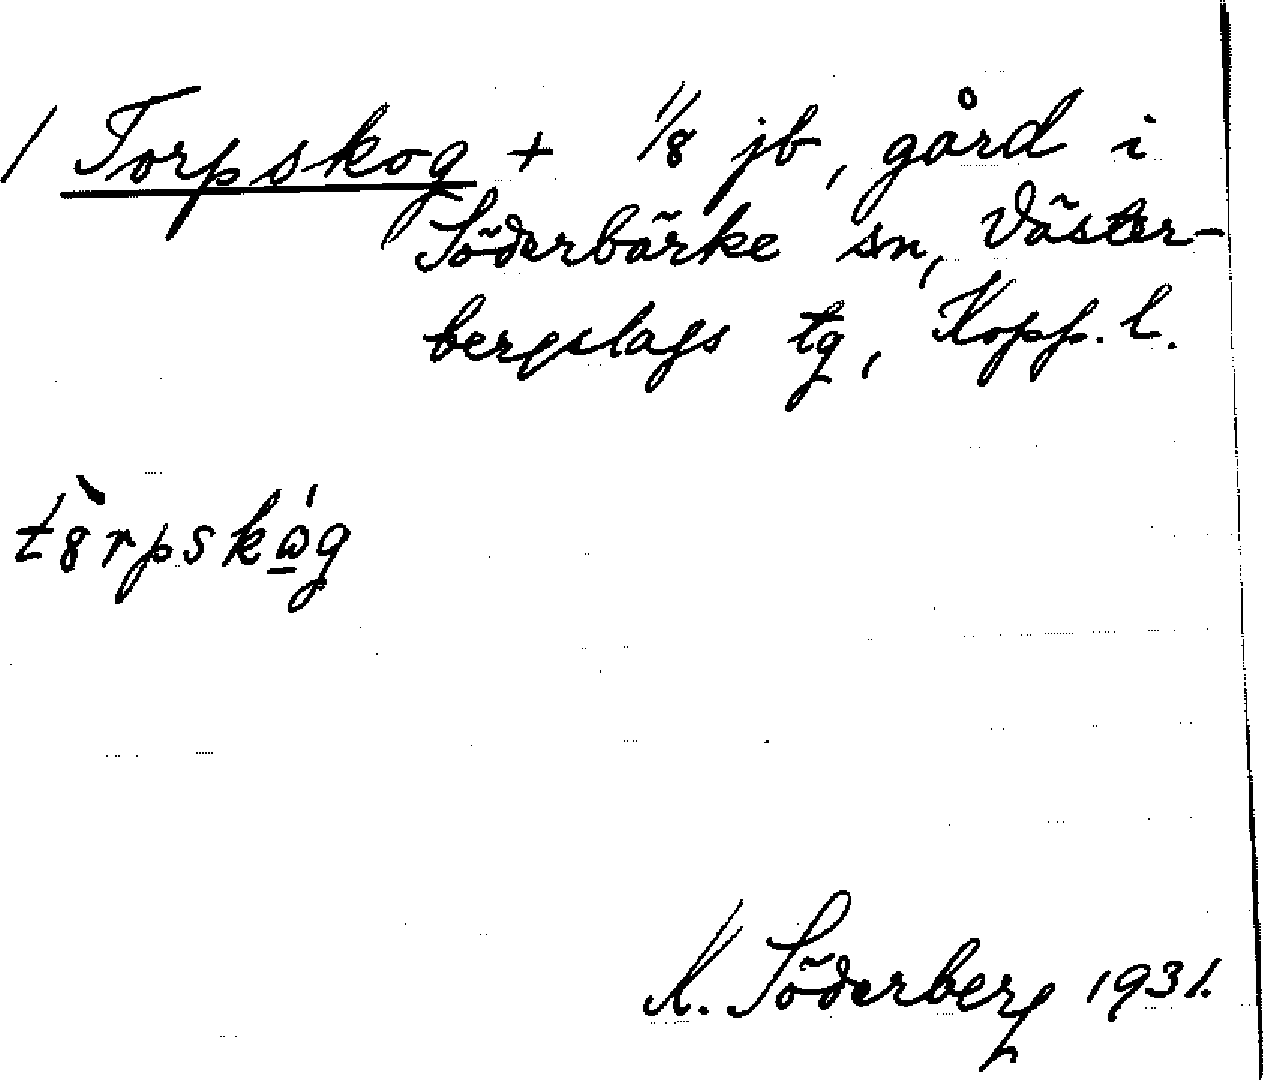 / Torpskog + 1/8 jb, gård i
Söderbärke sn, Väster-
bergslags tg, Kopp. l.
tȣ̀rpskώ̲g
K. Söderberg 1931.